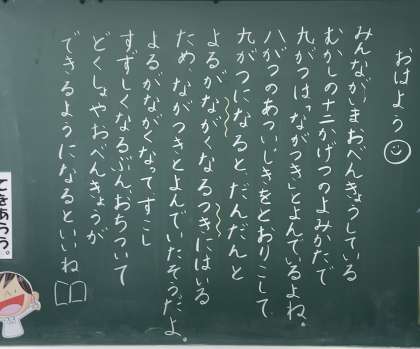 おはよう
みんながいまおべんきょうしている
むかしの十二かげつのよみかたで
九がつは「ながつき」とよんでいるよね。
八がつのあついじきをとおりこして
九がつになると、だんだんと
よるがながくなるつきにはいる
ため、ながつきとよんでいたそうだよ。
よるがながくなってすこし
すずしくなるぶん、おちついて
どくしょやおべんきょうが
できるようになるといいね
であおう。